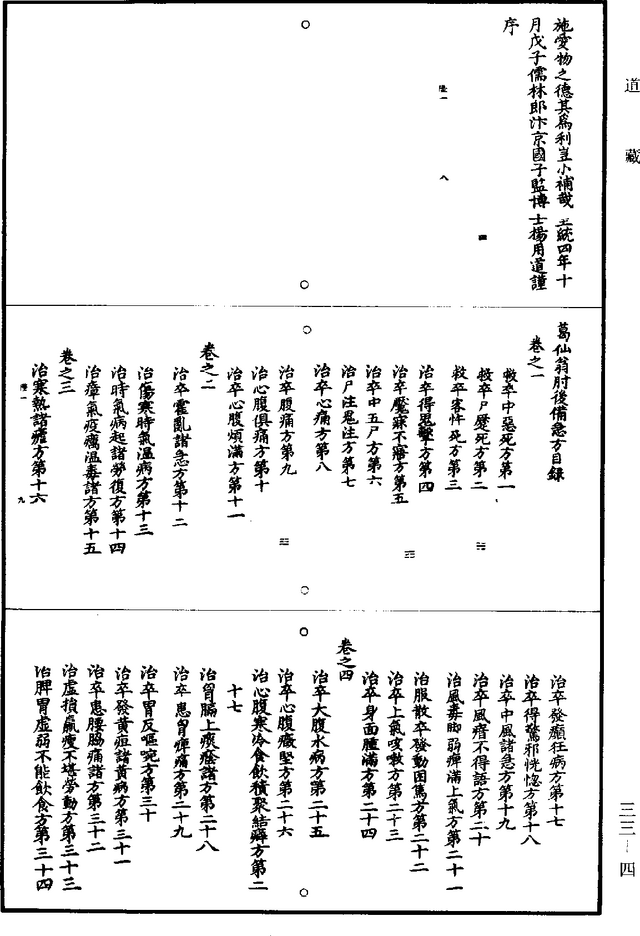 道藏
施愛物之德其爲利豈小補哉皇統四年十
月戊子儒林郎汴京國子監博士楊用道謹
序
隆一 八
葛仙翁肘後備急方目録
卷之一
救卒中惡死方第一
救卒尸蹷死方第二
救卒客忤死方第三
治卒得鬼擊方第四
治卒魘寐不寤方第五
治卒中五尸方第六
治尸注鬼注方第七
治卒心痛方第八
治卒腹痛方第九
治心腹俱痛方第十
治卒心腹煩滿方第十一
卷之二
治卒霍亂諸急方第十二
治傷寒時氣溫病方第十三
治時氣病起諸勞復方第十四
治瘴氣疫癘溫毒諸方第十五
卷之三
治寒熱諸瘧方第十六
隆一 九
治卒發癲狂病方第十七
治卒得驚邪恍惚方第十八
治卒中風諸急方第十九
治卒風瘖不得語方第二十
治風毒脚弱痺滿上氣方第二十一
治服散卒發動困篤方第二十二
治卒上氣咳嗽方第二十三
治卒身面腫滿方第二十四
卷之四
治卒大腹水病方第二十五
治卒心腹癥堅方第二十六
治心腹寒冷食飲積聚結癖方第二
十七
治胷膈上痰癊諸方第二十八
治卒患胷痺痛方第二十九
治卒胃反嘔啘方第三十
治卒發黃疸諸黃病方第三十一
治卒患腰脇痛諸方第三十二
治虛損羸瘦不堪勞動方第三十三
治脾胃虛弱不能飲食方第三十四
三三-四